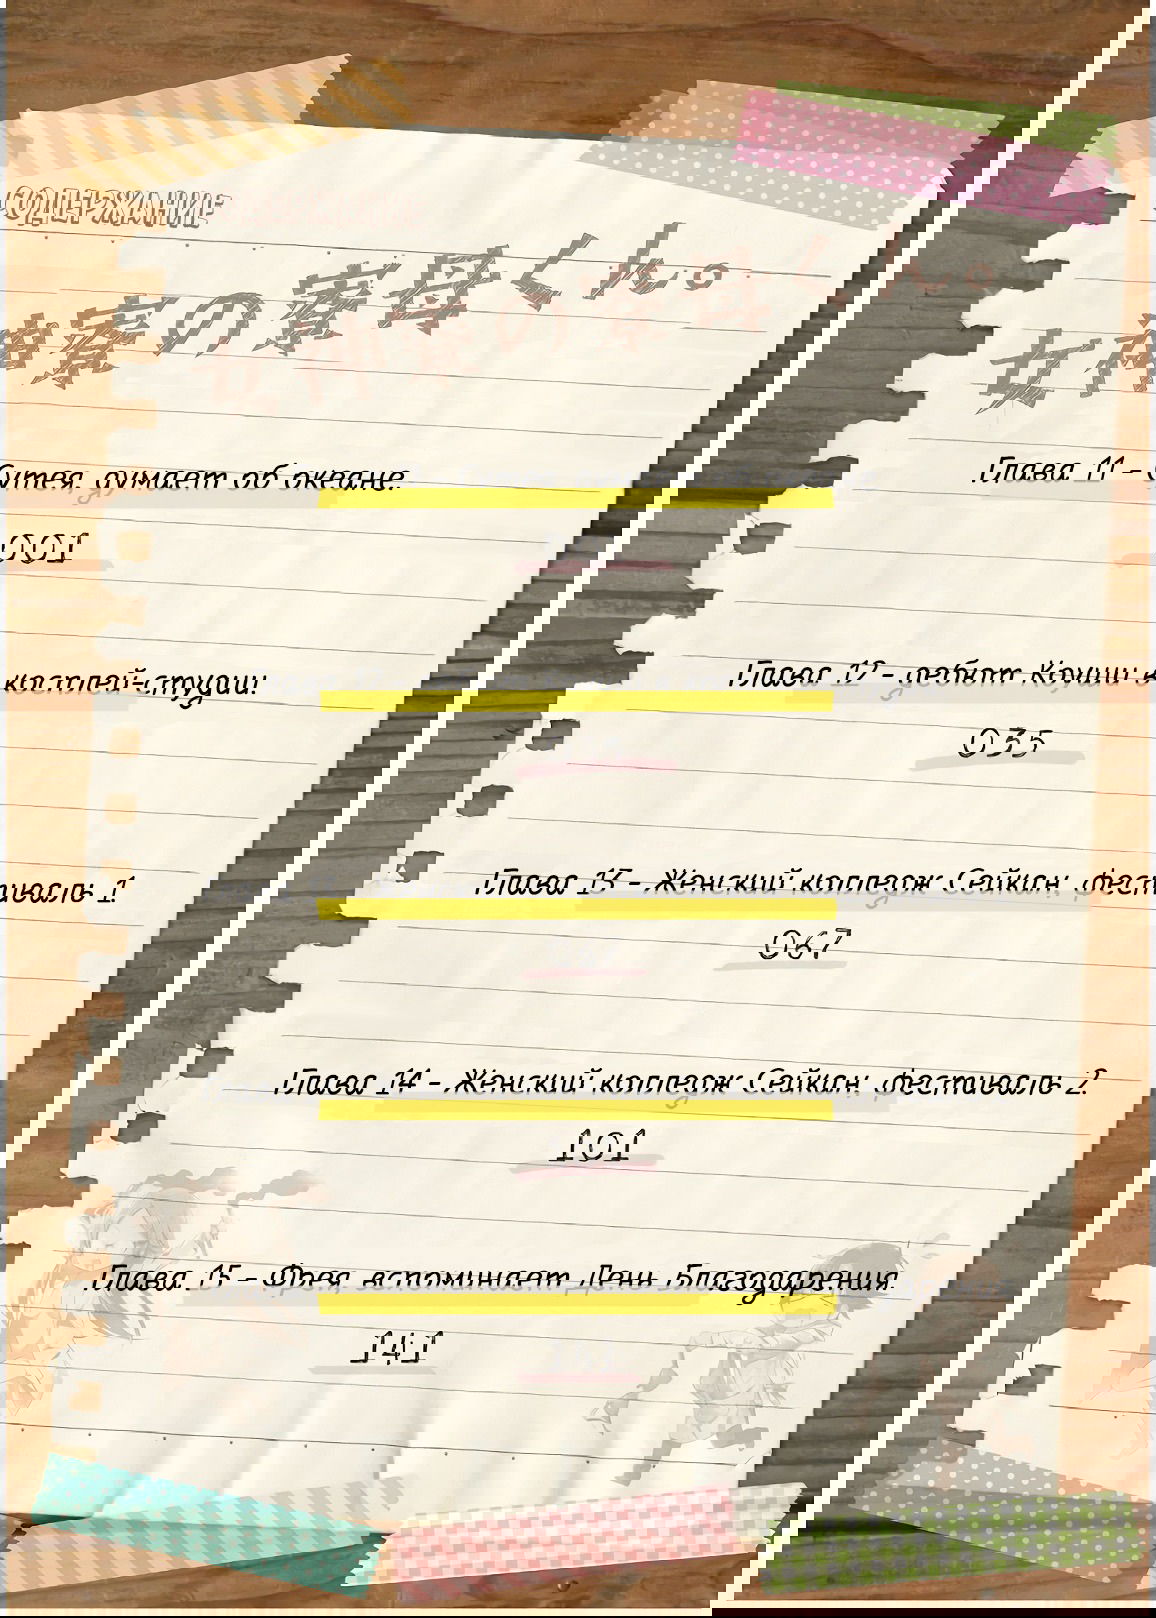 СОДЕРЖАНИЕ
女寮の寮母くん。
Глава 11 - Сутея. думает об океане.
001
Глава 12 - дебют Коуши в костлей-студии.
035
Глава 13 - Женский колледж Сейкан, фестиваль 1.
067
Глава 14 - Женский колледж Сейкан, фестиваль 2.
101
Глава 15 - Фрея, вспоминает День Благодарения.
141